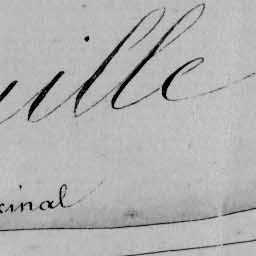 uille
inal